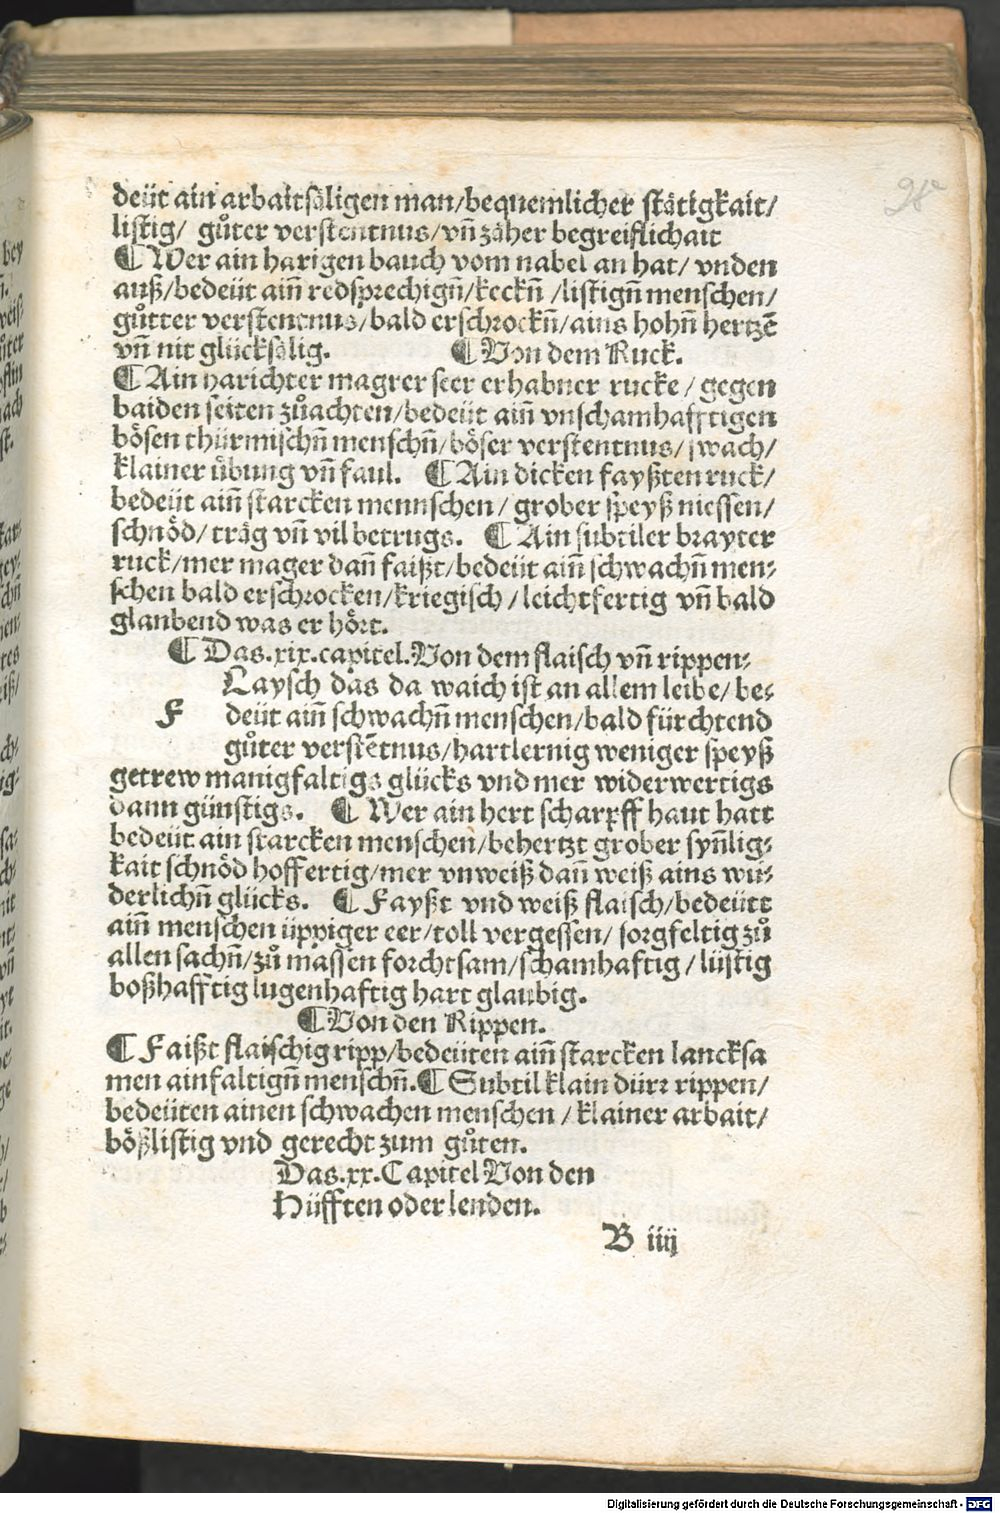 deüt ain arbaitsäligen man/bequemlicher stätigkait/
listig/ gůter verstentnus/vñ zäher begreiflichait
¶ Wer ain harigen bauch vom nabel an hat/ vnden
auß/bedeüt aiñ redsprechigñ/keckñ /listigñ menschen/
gůtter verstentnus/bald erschrockñ/ains hohñ hertzē
vñ nit glücksälig. ¶ Von dem Ruck.
¶ Ain harichter magrer seer erhabner rucke/ gegen
baiden seiten zůachten/bedeüt aiñ vnschamhafftigen
bösen thürmischñ menschñ/böser verstentnus/swach/
klainer übung vñ faul. ¶ Ain dicken fayßten ruck/
bedeüt aiñ starcken mennschen/ grober speyß niessen/
schnöd/ träg vñ vil betrugs. ¶ Ain subtiler brayter
ruck/mer mager dañ faißt/bedeüt aiñ schwachñ men⸗
schen bald erschrocken/kriegisch/leichtfertig vñ bald
glaubend was er hört.
¶ Das.xix.capitel.Von dem flaisch vñ rippen⸗
Laysch das da waich ist an allem leibe/be⸗
F deüt aiñ schwachñ menschen/bald fürchtend
gůter verstētnus/hartlernig weniger speyß
getrew manigfaltigs glücks vnd mer widerwertigs
dann günstigs. ¶ Wer ain hert scharpff haut hatt
bedeüt ain starcken menschen/behertzt grober syñlig⸗
kait schnöd hoffertig/mer vnweiß dañ weiß ains wū⸗
derlichñ glücks. ¶ Fayßt vnd weiß flaisch/bedeütt
aiñ menschen üppiger eer/toll vergessen/ sorgfeltig zů
allen sachñ/zů massen forchtsam/schamhaftig/lüstig
boßhafftig lugenhaftig hart glaubig.
¶ Von den Rippen.
¶ Faißt flaischig ripp/bedeüten aiñ starcken lancksa
men ainfaltigñ menschñ.¶ Subtil klain dürr rippen/
bedeüten ainen schwachen menschen/klainer arbait/
bößlistig vnd gerecht zum gůten.
Das.xx.Capitel Von den
Hüfften oder lenden.
B iiij
Digitalisierung gefördert durch die Deutsche Forschungsgemeinschaft - DFG